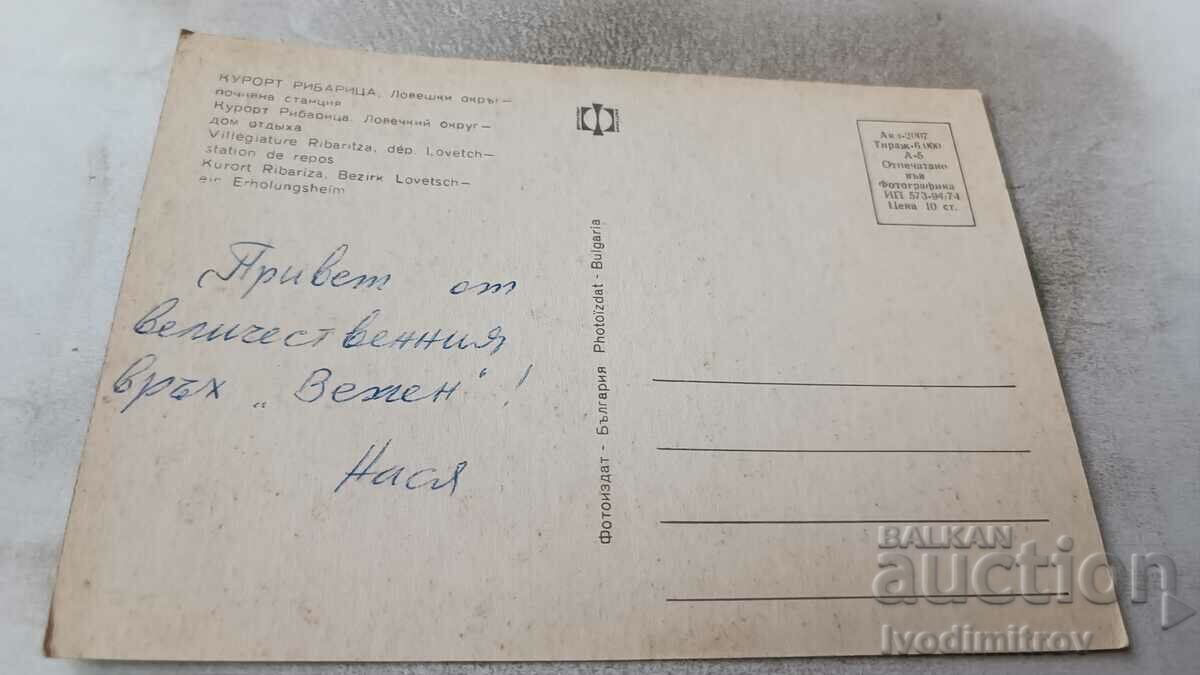 КУРОРТ РИБАРИЦА. Ловешки окръг —
почивна станция
Курорт Рибарица. Ловечкий округ —
дом отдыха
Villégiature Ribaritza, dép. Lovetch —
station de repos
Kurort Ribariza, Bezirk Lovetsch —
ein Erholungsheim
Привет от
величествения
връх „Вежен“!
Нася
Фотоиздат - България Photoïzdat - Bulgaria
Тираж-6.000
А-5
Отпечатано
във
Фотографика
ИП 573-94/74
Цена 10 ст.
BALKAN
auction
Ivodimitrov